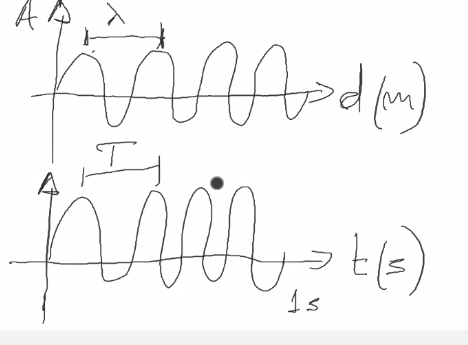 A λ
d(m)
T
t(s)
1s